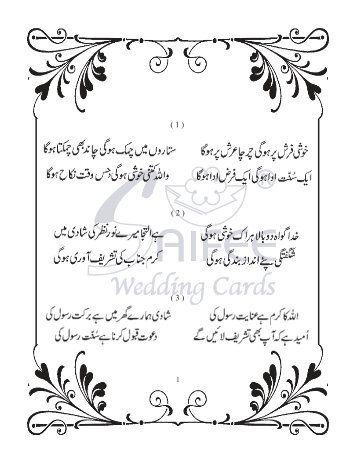 (1)
خوشی فرش پر ہوگی چرچا عرش پر ہوگا ستاروں میں چمک ہوگی چاند بھی چمکتا ہوگا
ایک سُنّت ادا ہوگی ایک فرض ادا ہوگا واللہ کتنی خوشی ہوگی جس وقت نکاح ہوگا
(2)
خدا گواہ دوبالا ہر اک خوشی ہوگی ہے التجا میرے نورِ نظر کی شادی میں
شگفتگی نئے انداز بندگی ہوگی کرم جناب کی تشریف آوری ہوگی
SAIFEE
Wedding Cards
(3)
اللہ کا کرم ہے عنایت رسول کی شادی ہمارے گھر میں ہے برکت رسول کی
اُمید ہے کہ آپ بھی تشریف لائیں گے دعوت قبول کرنا ہے سُنّت رسول کی
1